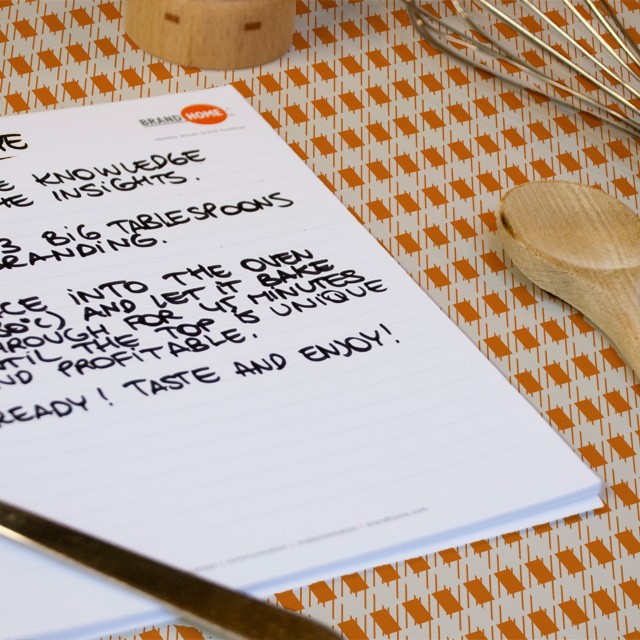 BRAND
E KNOWLEDGE
HE INSIGHTS.
3 BIG TABLESPOONS
RANDING.
CE INTO THE OVEN
AND LET IT BAKE
ROUGH FOR 45 MINUTES
TIL THE TOP IS UNIQUE
ND PROFITABLE.
READY! TASTE AND ENJOY!